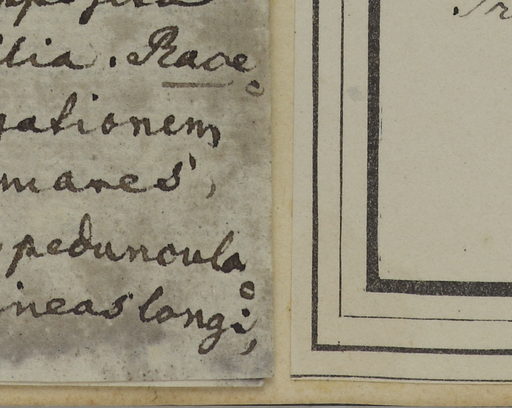 ilia. Race
ationem
mares,
peduncula
ineas longi,
Tr